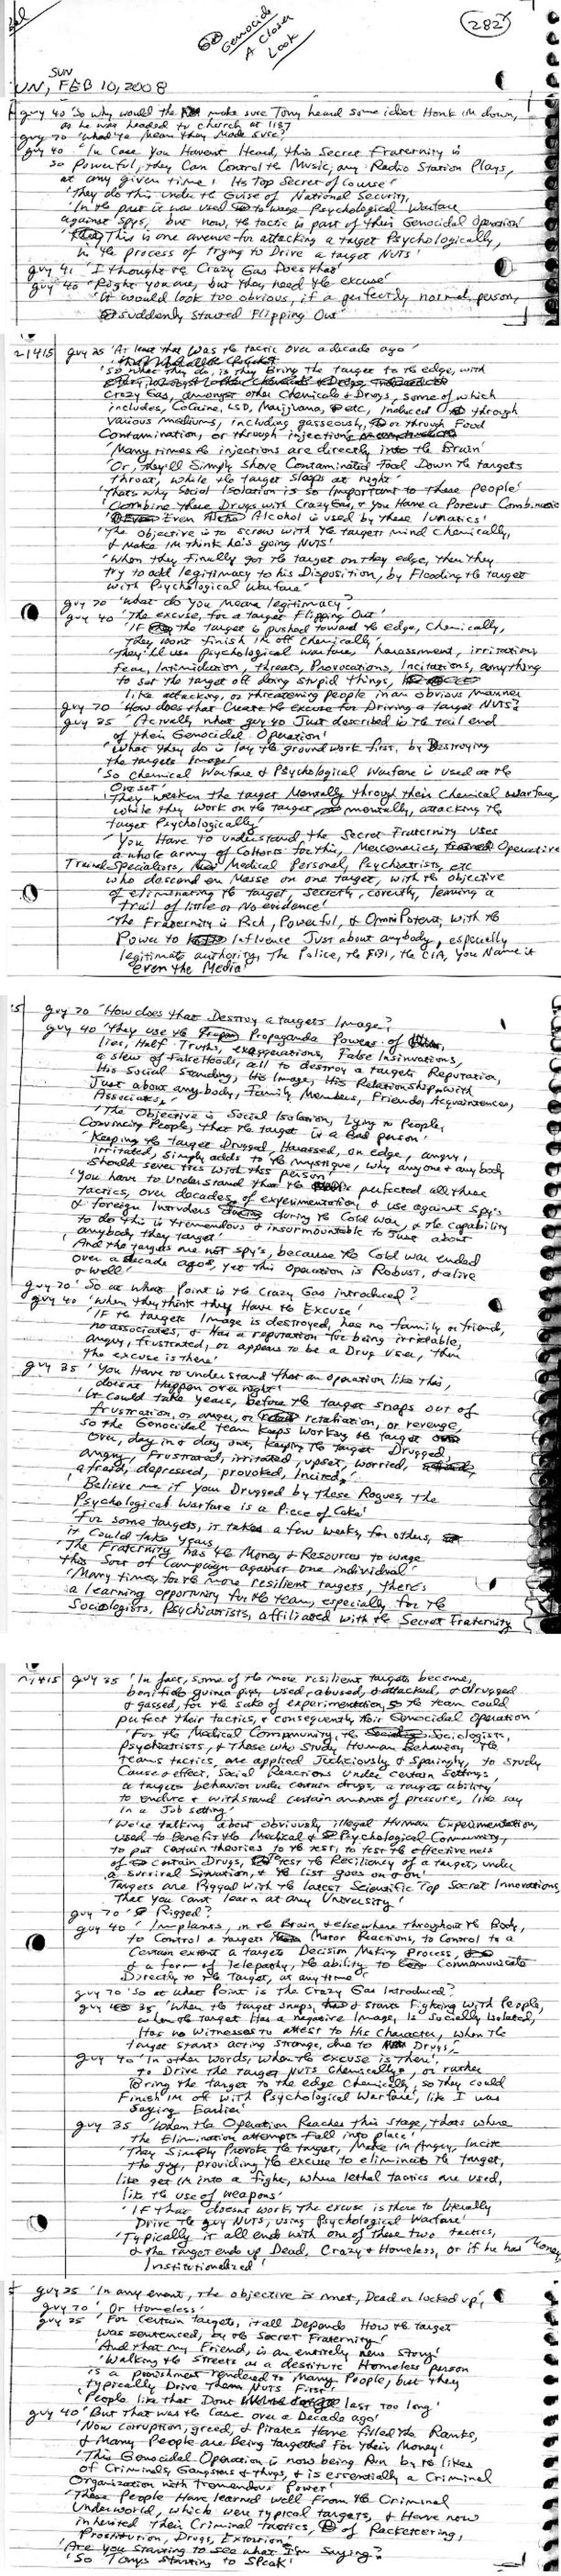 68 Genocide
A Closer
Look
282
SUN
UN, FEB 10, 2008
guy 40 'So why would the make sure Tony heard some idiot Honk im down,
as he was headed to church at 1157
guy 70 'what'ya mean they made sure?
guy 40 'In Case You Havent Heard, this Secret Fraternity is
so Powerful, they Can Control the Music, any Radio Station Plays,
at any given time! Its Top Secret of Course!
'They do this under the Guise of National Security,
'In the past it was used to wage Psychological Warfare
against Spys, but now, the tactic is part of their Genocidal Operation'
'This is one avenue for attacking a target Psychologically,
in the process of trying to Drive a target Nuts'
guy 41 'I thought the Crazy Gas Does that'
guy 40 'Right you are, but they need the excuse'
'It would look too obvious, if a perfectly normal person,
suddenly started Flipping Out'
21415 guy 35 'At least that was the tactic over a decade ago'
'So what they do, is they Bring the target to the edge, with
Crazy Gas, amongst other Chemicals & Drugs, some of which
includes, Cocaine, LSD, Marijuana, etc, Induced through
various mediums, including gasseously, or through Food
Contamination, or through injections
'Many times the injections are directly into the Brain'
'Or, they'll Simply shove Contaminated Food Down the targets
throat, while the target sleeps at night'
'Thats why Social Isolation is so Important to these people'
'Combine these Drugs with Crazy Gas, & you Have a Potent Combination
Even Alcohol is used by these lunatics'
'The objective is to screw with the targets mind Chemically,
& Make im think he's going Nuts!
'When they Finally got the target on the edge, then they
try to add legitimacy to his Disposition, by Flooding the target
with Psychological Warfare'
guy 70 'What do you Mean legitimacy?
guy 40 'The excuse, for a target Flipping Out'
'IF the target is pushed toward the edge, Chemically,
They wont finish im off Chemically'
'They'll use Psychological Warfare, harassment, irritations,
Fear, Intimidation, threats, Provocations, Incitations, anything
to set the target off doing stupid things,
like attacking, or threatening people in an obvious manner
guy 70 'How does that Create the excuse for Driving a target Nuts?
guy 35 'Actually what guy 40 Just described is the tail end
of their Genocidal Operation!
'What they do is lay the ground work first, by Destroying
the targets Image!
'So chemical Warfare & Psychological Warfare is used at the
Onset'
'They weaken the target Mentally through their Chemical warfare,
while they work on the target mentally, attacking the
target Psychologically!
'You Have to understand the Secret Fraternity uses
a whole army of Cohorts for this, Mercenaries, Operatives
Trained Specialists, Medical Personal, Psychiatrists, etc
who descend en Masse on one target, with the objective
of eliminating the target, secretly, covertly, leaving a
trail of little or No evidence!
'The Fraternity is Rich, Powerful, & Omni Potent, with the
Power to Influence Just about anybody, especially
legitimate authority, The Police, the FBI, the CIA, you Name it
even the Media!
guy 70 'How does that Destroy a targets Image?
guy 40 'They use the Propaganda Powers of
lies, Half Truths, exaggerations, False Insinuations,
a slew of False Hoods, all to destroy a targets Reputation,
His Social Standing, His Image, His Relationship with
Just about anybody, Family Members, Friends, Acquaintances,
Associates,'
'The Objective is Social Isolation, Lying to People,
Convincing People, that the target is a Bad person'
'Keeping the target Drugged, Harassed, on edge, angry,
irritated, simply adds to the mystique, why anyone & any body
should sever ties with this person'
'You have to understand that the perfected all these
tactics, over decades of experimentation, & use against Spy's
& foreign Intruders during the Cold War, & the capability
to do this is tremendous & insurmountable to Just about
anybody they target'
'And the targets are not spy's, because the Cold War ended
over a decade ago, yet this Operation is Robust, & alive
& well'
guy 70 'So at what Point is the Crazy Gas introduced?
guy 40 'When they think they Have the Excuse'
'IF the targets Image is destroyed, has no family or friend,
no associates, & Has a reputation for being irritable,
angry, frustrated, or appears to be a Drug User, then
the excuse is there'
guy 35 'You Have to understand that an operation like this,
doesnt Happen over night'
'It Could take years, before the target snaps out of
frustration, or anger, or retaliation, or revenge,
so the Genocidal team keeps working the target
over, day in & day out, Keeping the target Drugged,
angry, frustrated, irritated, upset, worried,
afraid, depressed, provoked, Incited,'
'Believe me if your Drugged by these Rogues, the
Psychological Warfare is a Piece of Cake'
'For some targets, it takes a few weeks, for others,
it Could take Years'
'The Fraternity has the Money & Resources to wage
this Sort of Campaign against one individual'
'Many times, for the more resilient targets, there's
a learning opportunity for the team, especially for the
Sociologists, Psychiatrists, affiliated with the Secret Fraternity
21415 guy 35 'In fact, some of the more resilient targets become,
bonified guinea pigs, used, abused, attacked, & drugged
& gassed, for the sake of experimentation, so the team could
perfect their tactics, & consequently their Genocidal Operation'
'For the Medical Community, the Sociologists,
Psychiatrists, & Those who Study Human Behavior, the
Teams tactics, are applied Judiciously & Sparingly, to study
Cause & effect, Social Reactions Under certain Settings,
a targets behavior under certain drugs, a targets ability,
to endure & withstand certain amounts of pressure, like say
in a Job setting'
'We're talking about obviously illegal Human Experimentation,
used to Benefit the Medical & Psychological Community,
to put certain theories to the test, to test the effectiveness
of certain Drugs, to test the Resiliency of a target, under
a survival Situation, & the list goes on & on'
'Targets are Rigged with the latest Scientific Top Secret Innovations,
that you cant learn at any University'
guy 70 'Rigged?
guy 40 'Implants, in the Brain, & elsewhere throughout the Body,
to Control a targets Motor Reactions, to Control to a
Certain extent a targets Decision Making Process,
& a form of Telepathy, the ability to Communicate
Directly to the Target, at any time'
guy 70 'So at what Point is the Crazy Gas Introduced?
guy 35 'When the target snaps, & starts Fighting with People,
when the target Has a negative Image, Is Socially Isolated,
Has no Witnesses to attest to His Character, when the
Target starts acting strange, due to Drugs'
guy 40 'In other words, when the excuse is there'
'To Drive the target Nuts Chemically, or rather
Bring the target to the edge Chemically, so they could
Finish im off with Psychological Warfare, like I was
saying Earlier'
guy 35 'When the Operation Reaches this stage, thats where
the Elimination attempts Fall into place'
'They Simply Provoke the target, Make im Angry, Incite
the guy, providing the excuse to eliminate the target,
like get im into a fight, where lethal tactics are used,
like the use of weapons'
'IF that doesnt work, The excuse is there to literally
Drive the guy Nuts, using Psychological Warfare'
'Typically it all ends with one of these two tactics,
& the target ends up Dead, Crazy & Homeless, or if he has Money,
Institutionalized'
guy 35 'In any event, the objective is met, Dead or locked up'
guy 70 'Or Homeless'
guy 35 'For Certain targets, it all Depends How the target
was sentenced, by the Secret Fraternity'
'And that my Friend, is an entirely new Story'
'Walking the streets as a destitute Homeless person
is a punishment rendered to Many People, but they
typically Drive Them Nuts First'
'People like that Dont last too long'
guy 40 'But that was the Case over a Decade ago'
'Now corruption, greed, & Pirates Have filled the Ranks,
& Many People are Being targeted For their Money'
'This Genocidal Operation is now being Run by the likes
of Criminals, Gangsters & thugs, & is essentially a Criminal
Organization with Tremendous Power'
'These People Have learned well From the Criminal
Underworld, which were typical targets, & Have now
inherited their Criminal tactics, of Racketeering,
Prostitution, Drugs, Extortion'
'Are you starting to see what I'm Saying?
'So Tonys starting to Speak'